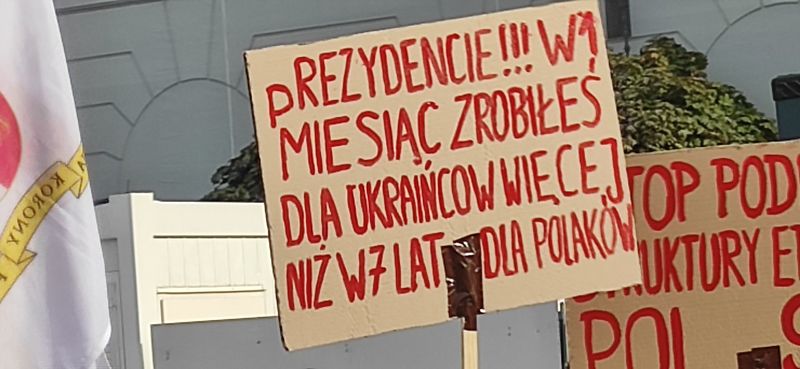 PREZYDENCIE!!! W 1
MIESIĄC ZROBIŁEŚ
DLA UKRAIŃCOW WIĘCEJ
NIŻ W 7 LAT DLA POLAKÓW
TOP POD
RUKTURY E
POL
KORONY